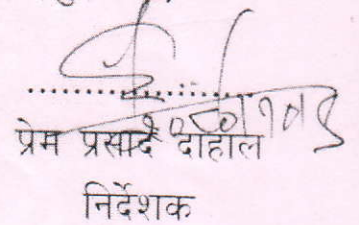 प्रेम प्रसाद दाहाल
निर्देशक